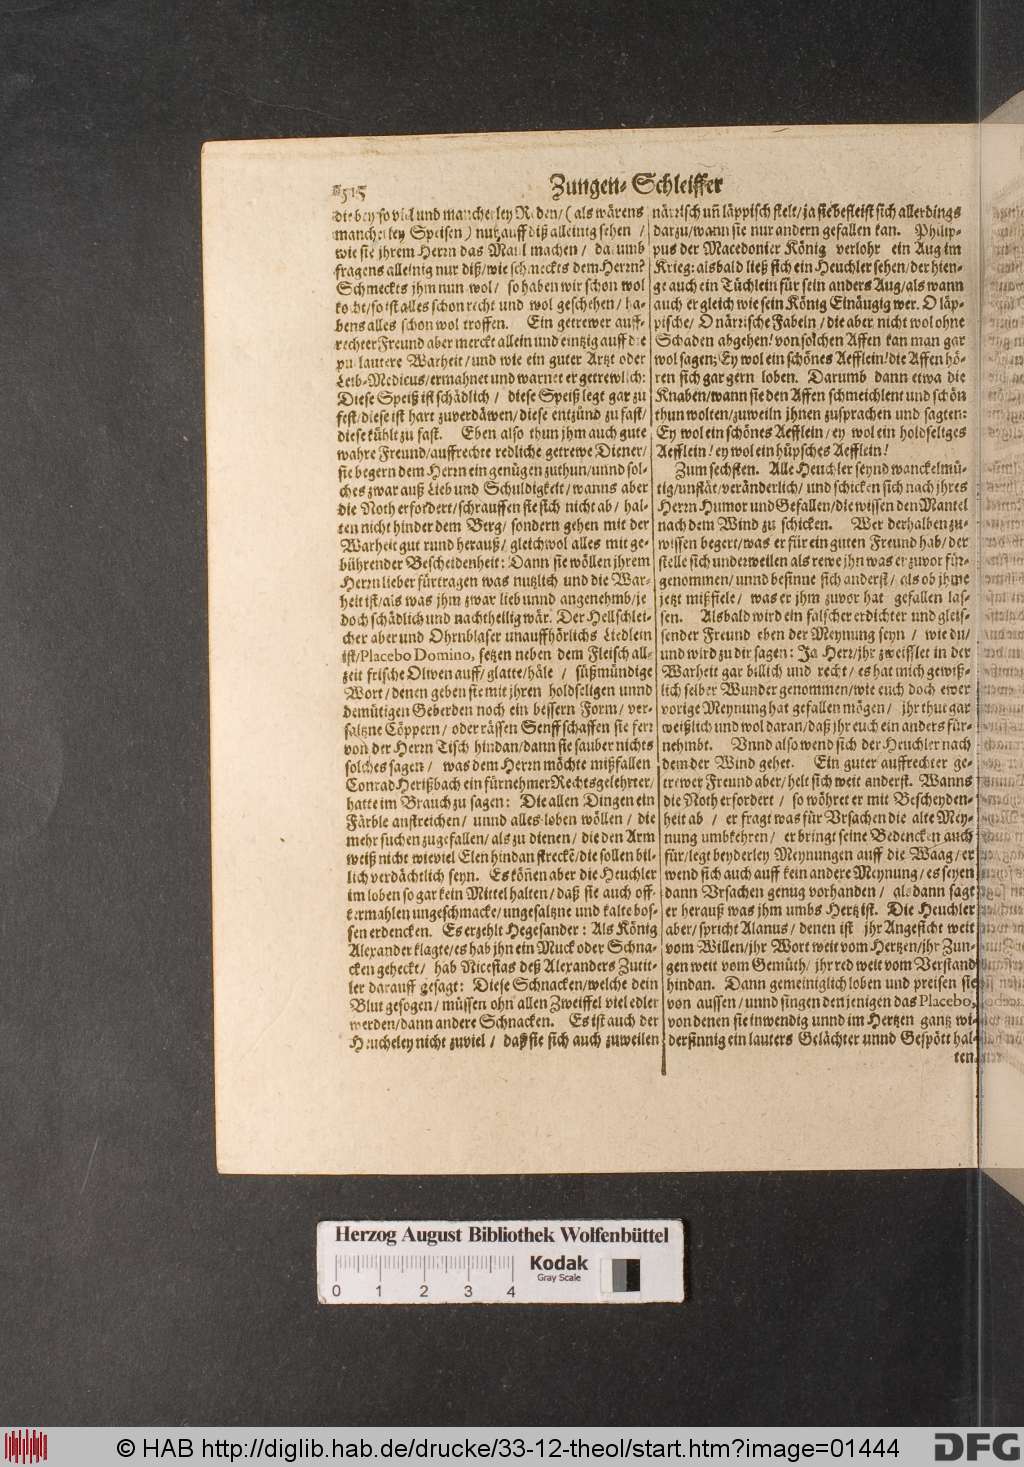 515
Zungen-Schleiffer
die bey so viel und mancherley Reden/ (als wärens
mancherley Speisen) nutz auff diß alleinig sehen /
wie sie jhrem Herrn das Maul machen / darumb
fragens alleinig nur diß/wie schmeckts dem Herrn?
Schmeckts jhm nun wol/ so haben wir schon wol
kocht/so ist alles schon recht und wol geschehen / ha-
bens alles schon wol troffen. Ein getrewer auff-
rechter Freund aber merckt allein und eintzig auff die
pur lautere Warheit/und wie ein guter Artzt oder
Leib-Medicus/ermahnet und warnet er getrewlich:
Diese Speiß ist schädlich / diese Speiß legt gar zu
fest/diese ist hart zuverdäwen/diese entzünd zu fast/
diese kühlt zu fast. Eben also thun jhm auch gute
wahre Freund/auffrechte redliche getrewe Diener/
sie begern dem Herrn ein genügen zuthun/unnd sol-
ches zwar auß Lieb und Schuldigkeit/wanns aber
die Noth erfordert/schrauffen sie sich nicht ab/ hal-
ten nicht hinder dem Berg/ sondern gehen mit der
Warheit gut rund herauß/ gleichwol alles mit ge-
bührender Bescheidenheit: Dann sie wöllen jhrem
Herrn lieber fürtragen was nutzlich und die War-
heit ist/als was jhm zwar lieb unnd angenehmb/je
doch schädlich und nachtheilig wär. Der Hellschlei-
cher aber und Ohrnblaser unauffhörlichs Liedlein
ist/Placebo Domino, setzen neben dem Fleisch all-
zeit frische Oliven auff/glatte/häle / süßmündige
Wort/denen geben sie mit jhren holdseligen unnd
demütigen Geberden noch ein bessern Form/ ver-
saltzne Cöppern/ oder rässen Senff schaffen sie ferr
von der Herrn Tisch hindan/dann sie sauber nichts
solches sagen/ was dem Herrn möchte mißfallen
Conrad Herißbach ein fürnehmer Rechtsgelehrter/
hatte im Brauch zu sagen: Die allen Dingen ein
Färble anstreichen/ unnd alles loben wöllen / die
mehr suchen zugefallen/als zu dienen/ die den Arm
weiß nicht wieviel Elen hindan streckē/die sollen bil-
lich verdächtlich seyn. Es köñen aber die Heuchler
im loben so gar kein Mittel halten/daß sie auch off-
termahlen ungeschmacke/ungesaltzne und kalte bos-
sen erdencken. Es erzehlt Hegesander: Als König
Alexander klagte/es hab jhn ein Muck oder Schna-
cken geheckt/ hab Nicesias deß Alexanders Zutit-
ler darauff gesagt: Diese Schnacken/welche dein
Blut gesogen/ müssen ohn allen Zweiffel viel edler
werden/dann andere Schnacken. Es ist auch der
Heucheley nicht zuviel / daß sie sich auch zuweilen
närrisch uñ läppisch stelt/ja sie befleist sich allerdings
darzu/wann sie nur andern gefallen kan. Philip-
pus der Macedonier König verlohr ein Aug im
Krieg: alsbald ließ sich ein Heuchler sehen/der hien-
ge auch ein Tüchlein für sein anders Aug/als wann
auch er gleich wie sein König Einäugig wer. O läp-
pische/ O närrische Fabeln /die aber nicht wol ohne
Schaden abgehen! von solchen Affen kan man gar
wol sagen; Ey wol ein schönes Aefflein! die Affen hö-
ren sich gar gern loben. Darumb dann etwa die
Knaben/wann sie den Affen schmeichlent und schön
thun wolten/zuweiln jhnen zusprachen und sagten:
Ey wol ein schönes Aefflein/ey wol ein holdseliges
Aefflein! ey wol ein hüpsches Aefflein!
Zum sechsten. Alle Heuchler seynd wanckelmü-
tig/unstät/veränderlich/ und schicken sich nach jhres
Herrn Humor und Gefallen/die wissen den Mantel
nach dem Wind zu schicken. Wer derhalben zu-
wissen begert/was er für ein guten Freund hab/der
stelle sich underweilen als rewe jhn was er zuvor für-
genommen/ unnd besinne sich anderst/ als ob jhme
jetzt mißfiele/ was er jhm zuvor hat gefallen las-
sen. Alsbald wird ein falscher erdichter und gleis-
sender Freund eben der Meynung seyn / wie du/
und wird zu dir sagen: Ja Herr/jhr zweifflet in der
Warheit gar billich und recht/ es hat mich gewiß-
lich selber Wunder genommen/wie euch doch ewer
vorige Meynung hat gefallen mögen/ jhr thut gar
weißlich und wol daran/daß jhr euch ein anders für-
nehmbt. Unnd also wend sich der Heuchler nach
dem der Wind gehet. Ein guter auffrechter ge-
trewer Freund aber/helt sich weit anderst. Wanns
die Noth erfordert / so wöhret er mit Bescheyden-
heit ab / er fragt was für Vrsachen die alte Mey-
nung umbkehren/ er bringt seine Bedencken auch
für/legt beyderley Meynungen auff die Waag/er
wend sich auch auff kein andere Meynung/es seyen
dann Vrsachen genug vorhanden/ als dann sagt
er herauß was jhm umbs Hertz ist. Die Heuchler
aber/spricht Alanus/ denen ist jhr Angesicht weit
vom Willen/jhr Wort weit vom Hertzen/jhr Zun-
gen weit vom Gemüth/ jhr red weit vom Verstand
hindan. Dann gemeiniglich loben und preisen sie
von aussen/ unnd singen den jenigen das Placebo,
von denen sie inwendig unnd im Hertzen gantz wi-
dersinnig ein lauters Gelächter unnd Gespött hal-
ten.
Herzog August Bibliothek Wolfenbüttel
Kodak
Gray Scale
0 1 2 3 4
© HAB http://diglib.hab.de/drucke/33-12-theol/start.htm?image=01444
DFG